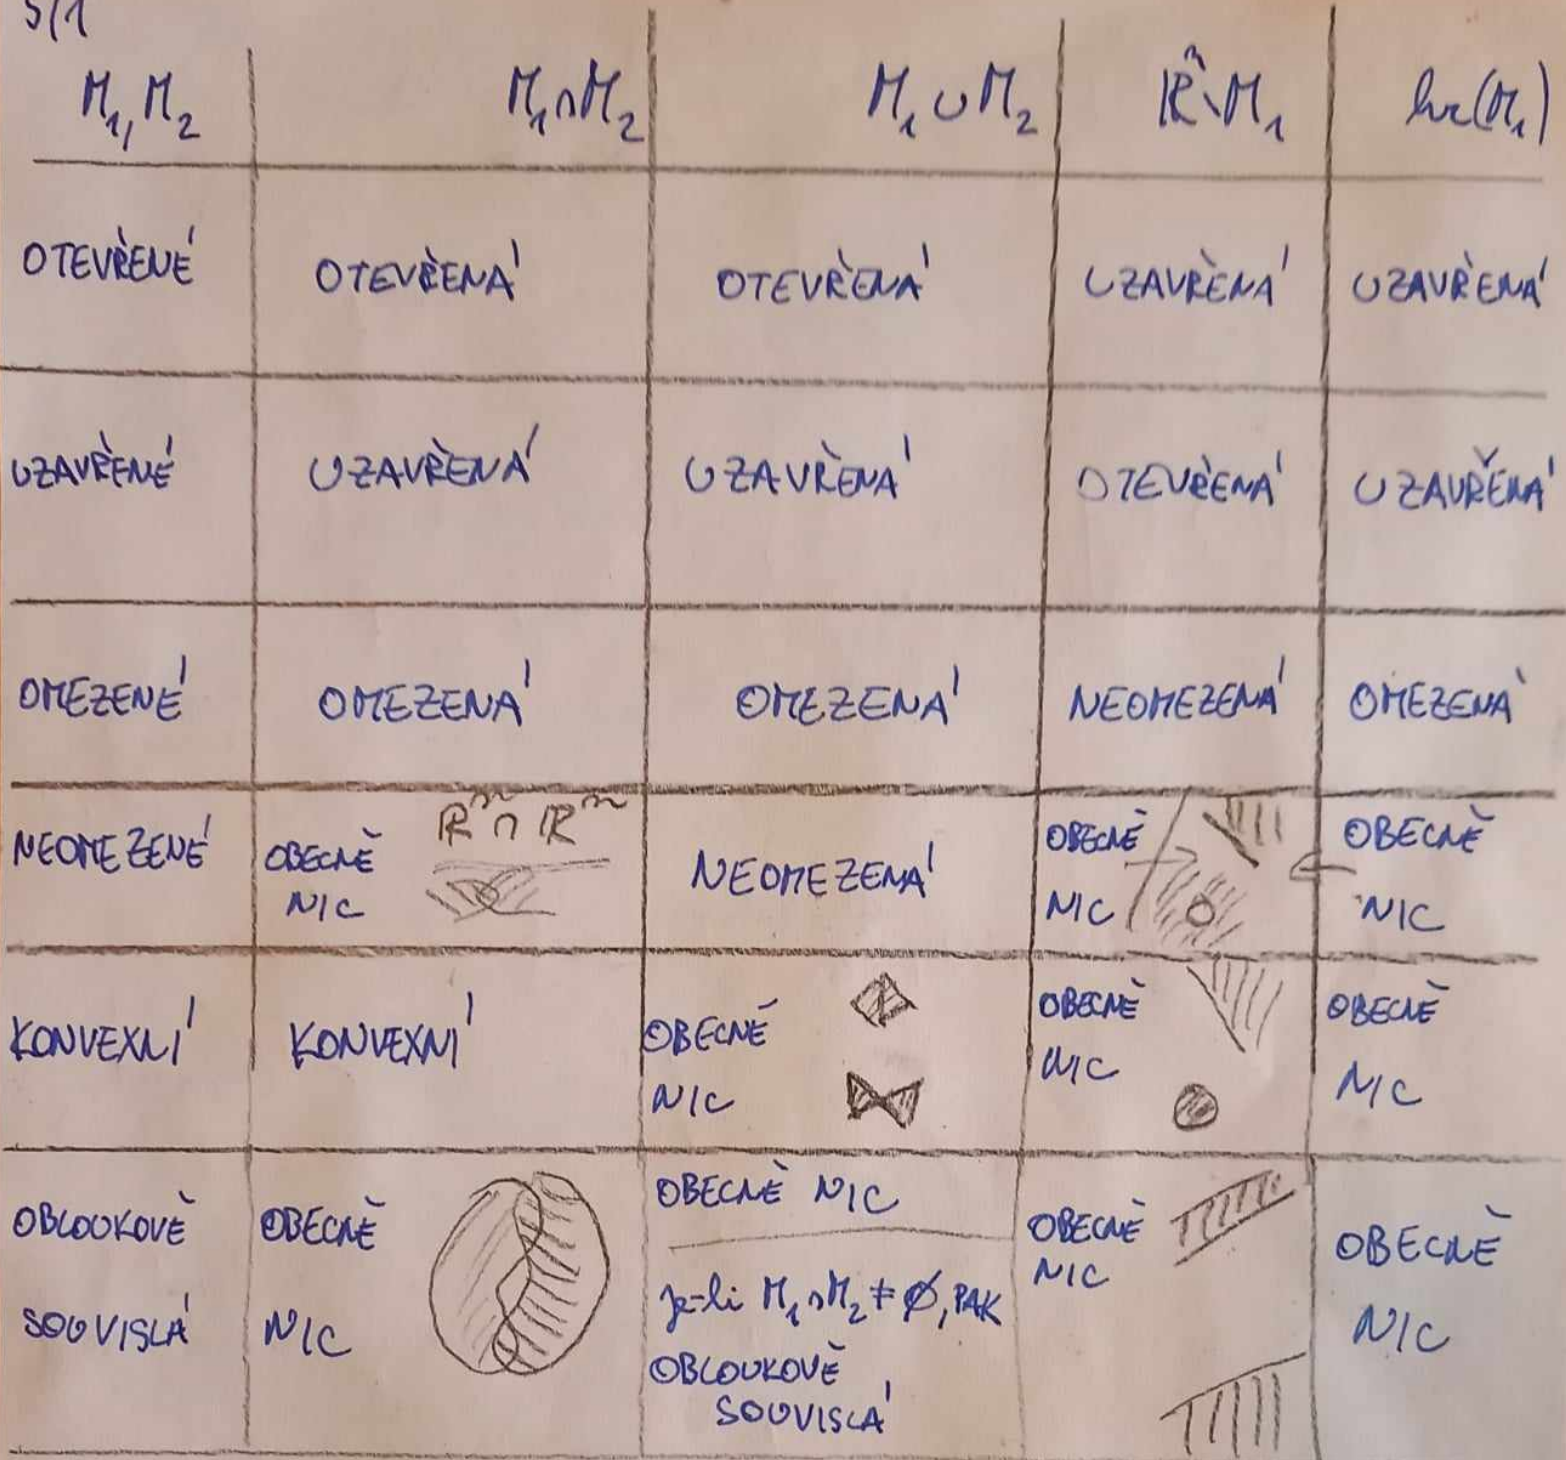 5/1
M₁, M₂ M₁∩M₂ M₁∪M₂ ℝⁿ∖M₁ hr(M₁)
OTEVŘENÉ OTEVŘENÁ OTEVŘENÁ UZAVŘENÁ UZAVŘENÁ
UZAVŘENÉ UZAVŘENÁ UZAVŘENÁ OTEVŘENÁ UZAVŘENÁ
OMEZENÉ OMEZENÁ OMEZENÁ NEOMEZENÁ OMEZENÁ
NEOMEZENÉ
OBECNĚ
NIC
ℝⁿ∩ℝⁿ
NEOMEZENÁ
OBECNĚ
NIC
OBECNĚ
NIC
KONVEXNÍ
KONVEXNÍ
OBECNĚ
NIC
OBECNĚ
NIC
OBECNĚ
NIC
OBLOUKOVĚ
SOUVISLÁ
OBECNĚ
NIC
OBECNĚ NIC
je-li M₁∩M₂ ≠ ∅, PAK
OBLOUKOVĚ
SOUVISLÁ
OBECNĚ
NIC
OBECNĚ
NIC